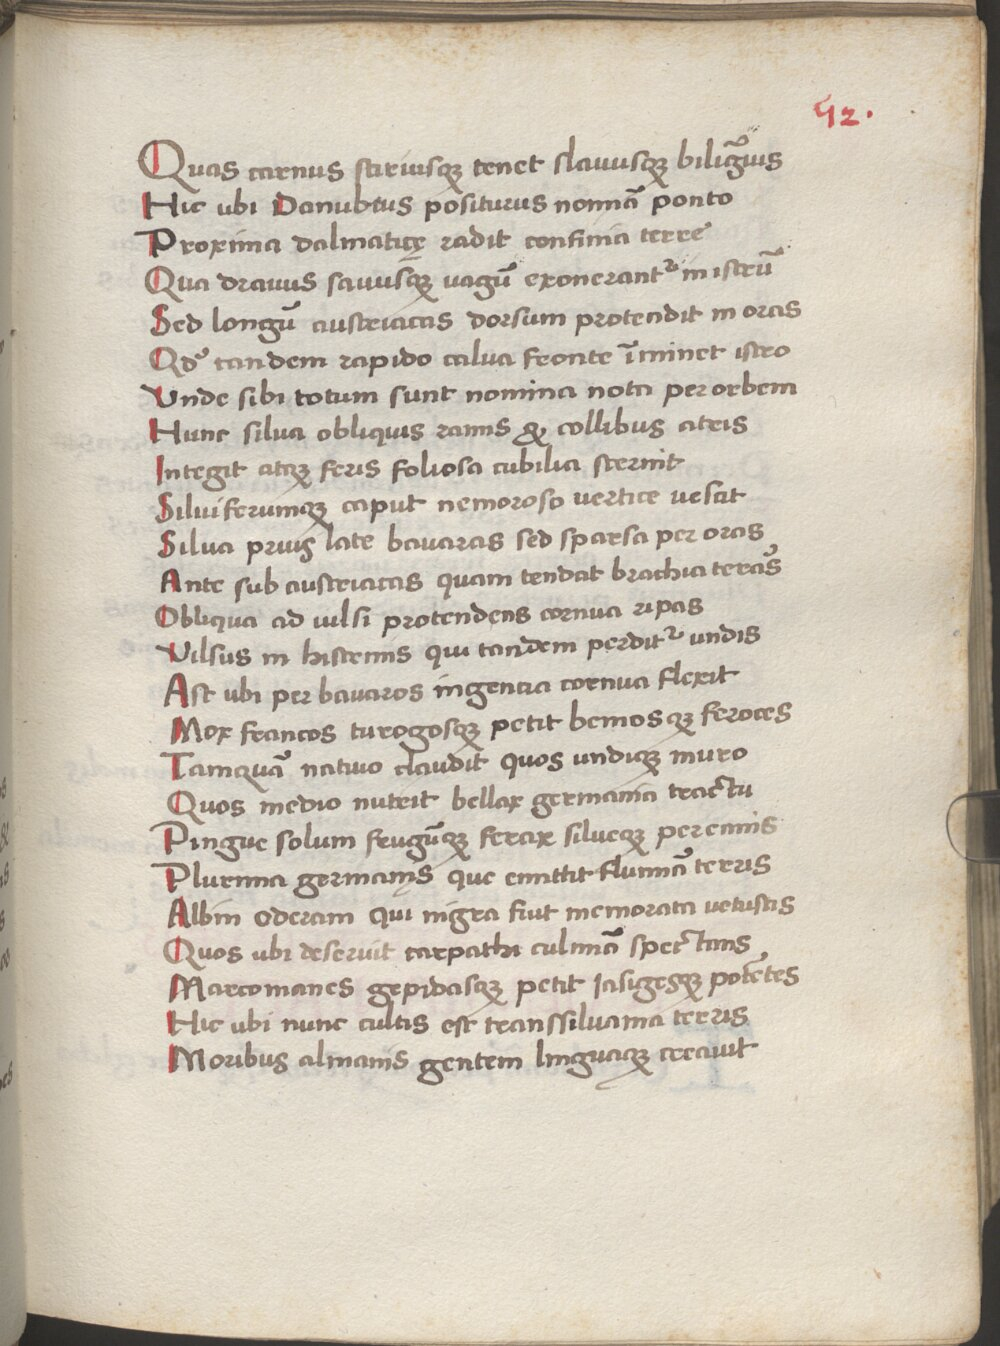 92.
Quas carnus stiriusqꝫ tenet slauusqꝫ biligũis
Hic ubi Danubius positurus nomnã ponto
Proxima dalmaticę radit confinia terre
Qua drauus sauusqꝫ uagũ exonerantᷣ in istrũ
Sed longũ austriacas dorsum protendit in oras
Qđ tandem rapido calua fronte ĩminet istro
Unde sibi totum sunt nomina nota per orbem
Hunc silua obliquis ramis & collibus atris
Integit atqꝫ feris foliosa cubilia sternit
Siluiferumqꝫ caput nemoroso uertice uestit
Silua prius late bauaras sed sparsa per oras
Ante sub austriacas quam tendat brachia terãs
Obliqua ad uilsi protendens cornua ripas
Vilsus in histrinis qui tandem perditᷣ undis
Ast ubi per bauaros ingentia cornua flexit
Mox francos turogosqꝫ petit bemosqꝫ feroces
Tamquã natiuo claudit quos undiqꝫ muro
Quos medio nutrit bellax germania tractu
Pingue solum frugũqꝫ ferax silueqꝫ perennis
Plurima germanis que emittit flumiã terris
Albim Oderam qui nigra fiut memorata uetustis
Quos ubi deseruit carpathi culmiã spectans
Marcomanes gepidasqꝫ petit Iasigesqꝫ potẽtes
Hic ubi nunc cultis est transsiluania terris
Moribus almanis gentem linguaqꝫ creauit